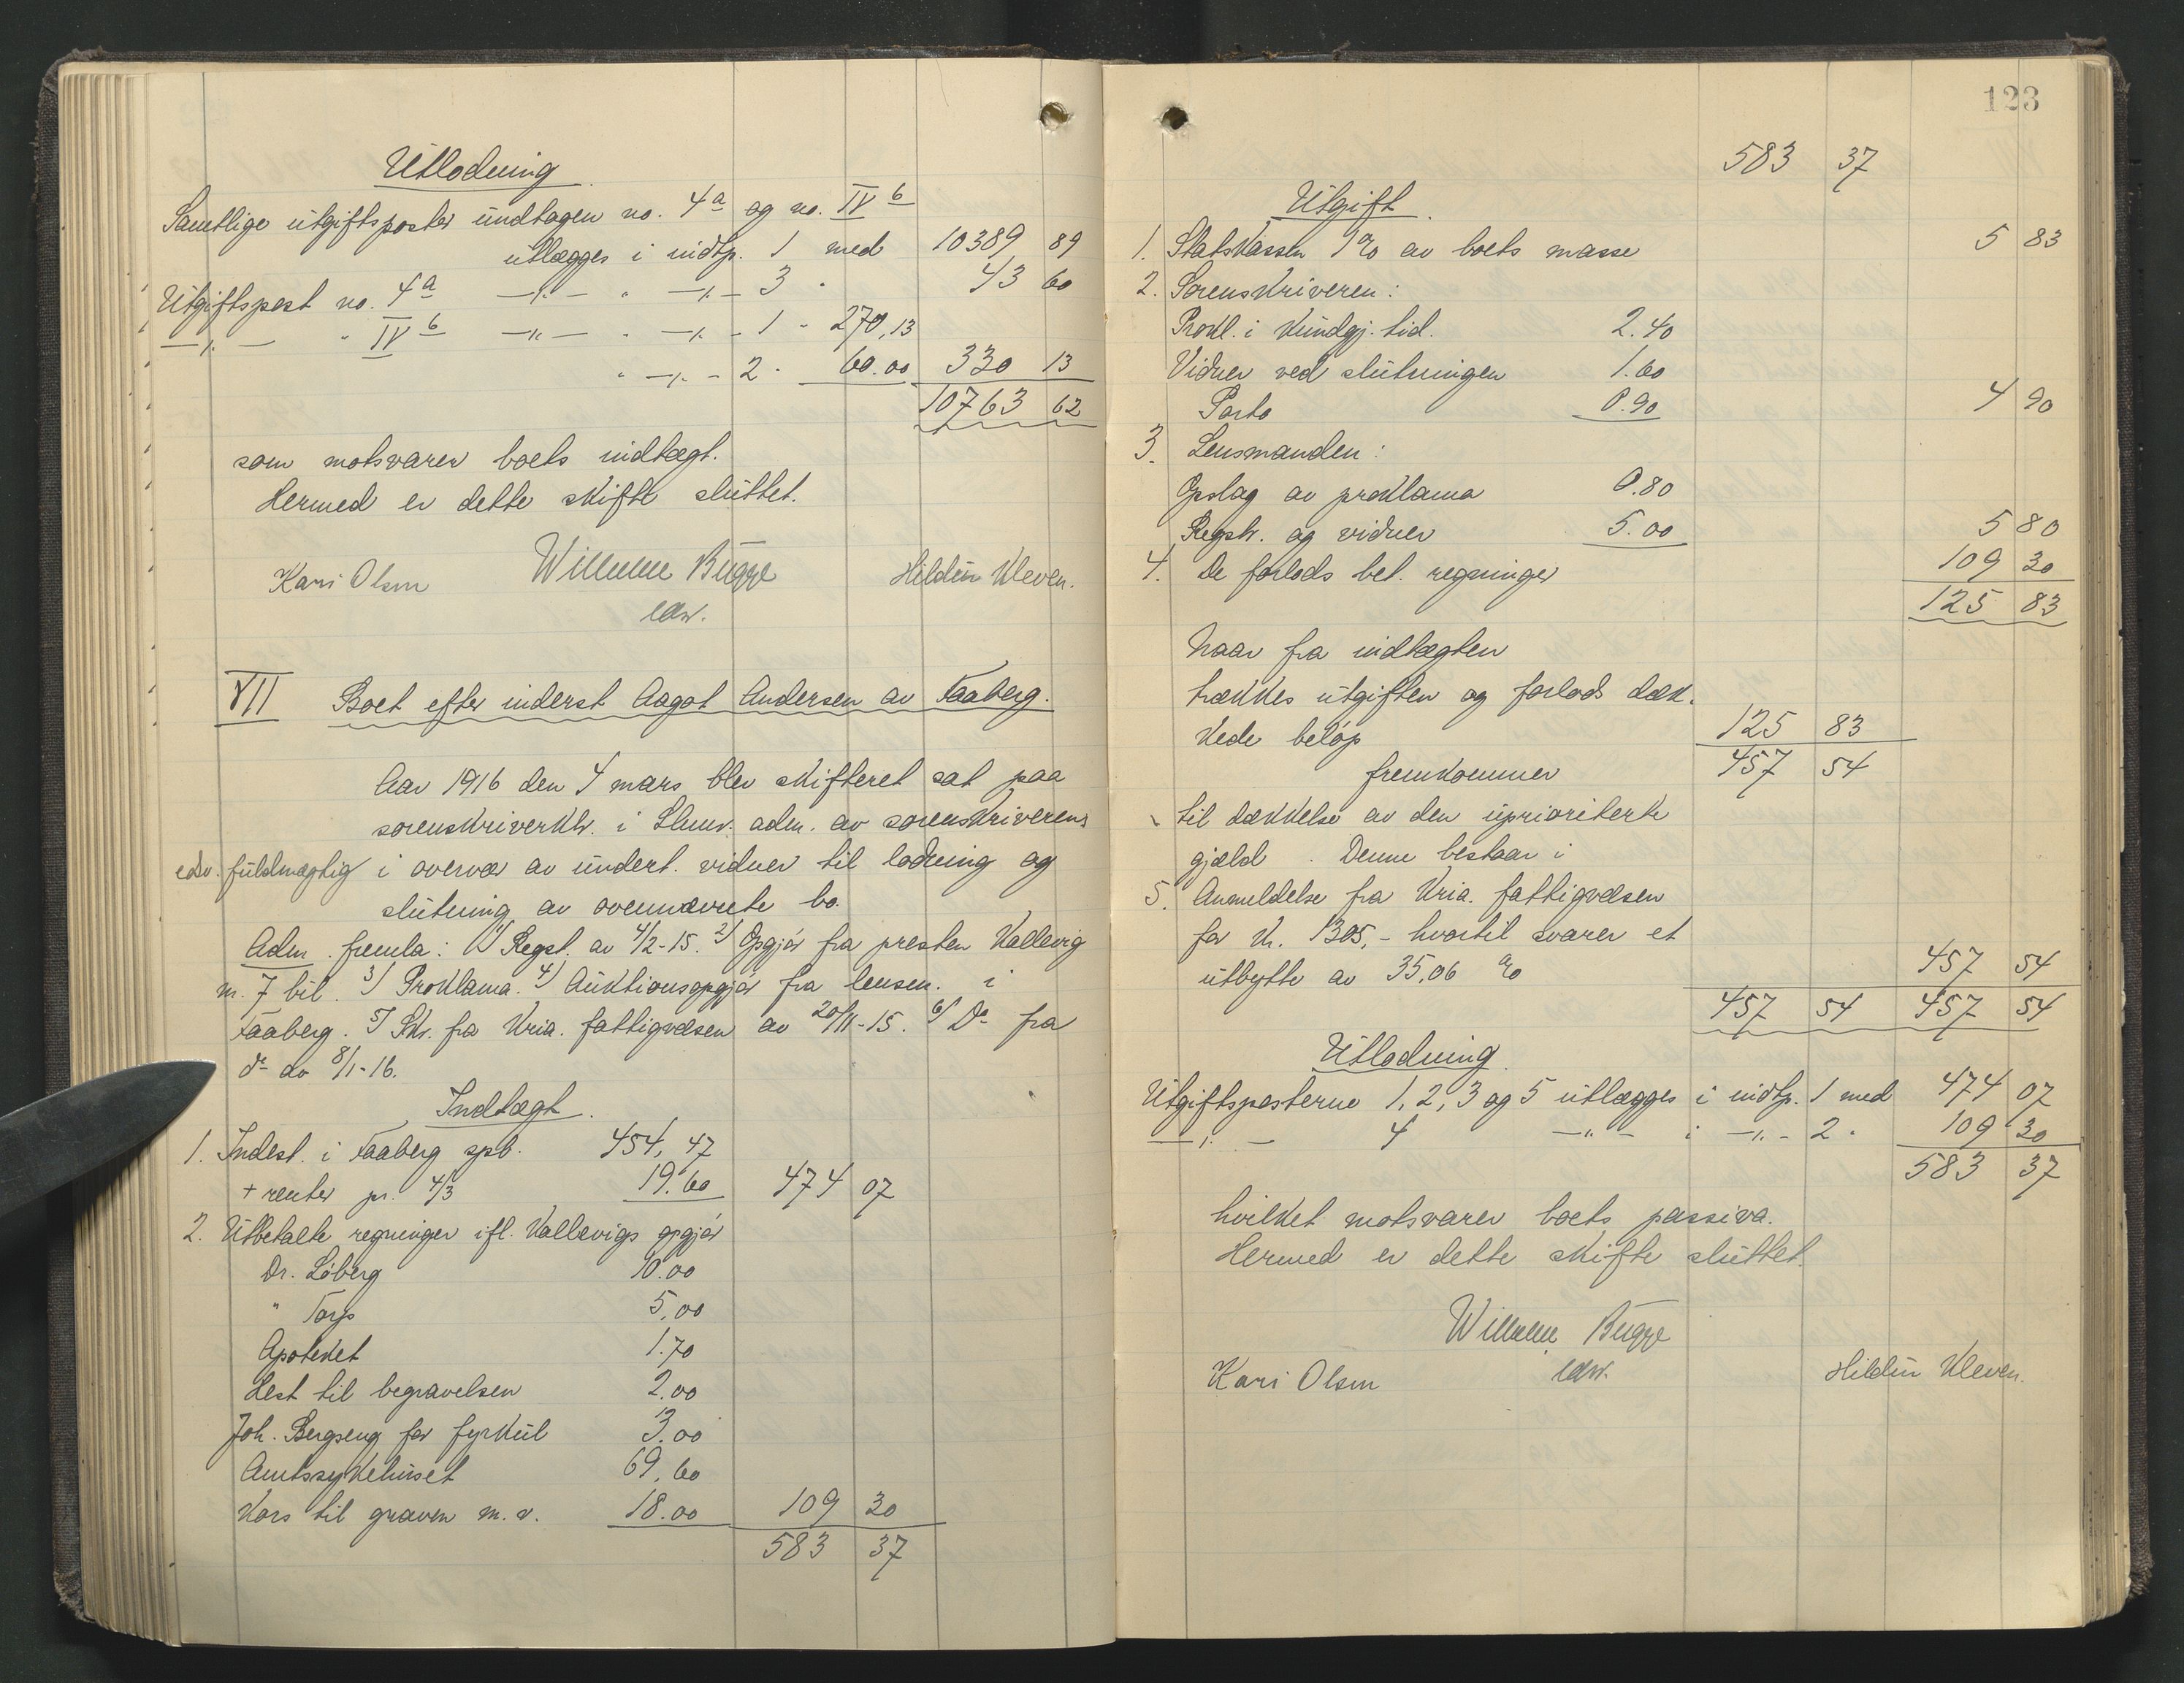 Utlodning.
Samtlige utgiftsposter undtagen no. 4a og no. IV b
utlægges i indtp. 1 med 10389 89
Utgiftspost no. 4a —"— " —"— 3 " 43 60
—"— " IV b —"— " —"— 1 - 270,13
" —"— 2 " 60.00 330 13
10763 62
som motsvarer boets indtægt.
Hermed er dette skifte sluttet.
Kari Olsen Wilhelm Bugge Hildur Kleven.
edsv.
VII Boet efter inderst Aagot Andersen av Faaberg.
Aar 1916 den 4 mars blev skifteret sat paa
sorenskriverktr. i Lhmr. adm. av sorenskriverens
edsv. fuldmægtig i overvær av undert. vidner til lodning og
slutning av ovennævnte bo.
Adm. fremla: 1) Regst. av 4/2-15. 2) Opgjør fra presten Kallevig
m. 7 bil. 3) Proklama. 4) Auktionsopgjør fra lensm. i
Faaberg. 5) Skr. fra Kria. fattigvæsen av 20/11-15. 6) Do fra
do av 8/1-16.
Indtægt.
1. Indest. i Faaberg spb. 454,47
+ renter pr. 4/3 19.60 474 07
2. Utbetalte regninger ifl. Kallevigs opgjør
Dr. Løberg 10.00
" Torp 5.00
Apoteket 1.70
Hest til begravelsen 2.00
Joh. Bergseng for hyrkul 3.00
Amtssykehuset 69.60
Kors til graven m. v. 18.00 109 30
583 37
123
583 37
Utgift.
1. Statskassen 1% av boets masse 5 83
2. Sorenskriveren:
Prokl. i kundgj. tid. 2.40
Vidner ved slutningen 1.60
Porto 0.90 4 90
3. Lensmanden:
Opslag av proklama 0.80
Regstr. og vidner 5.00 5 80
4. De forlods bet. regninger 109 30
125 83
Naar fra indtægten
trækkes utgiften og forlods dæk-
kede beløp 125 83
fremkommer 457 54
til dækkelse av den uprioriterte
gjæld. Denne bestaar i
5. Anmeldelse fra Kria. fattigvæsen
for kr. 1305,- hvortil svarer et
utbytte av 35.06 % 457 54
457 54 457 54
Utlodning.
Utgiftsposterne 1, 2, 3 og 5 utlægges i indtp. 1 med 474 07
—"— 4 —"— i —"— 2 " 109 30
583 37
hvilket motsvarer boets passiva.
Hermed er dette skifte sluttet.
Wilhelm Bugge
Kari Olsen edsv. Hildur Kleven.